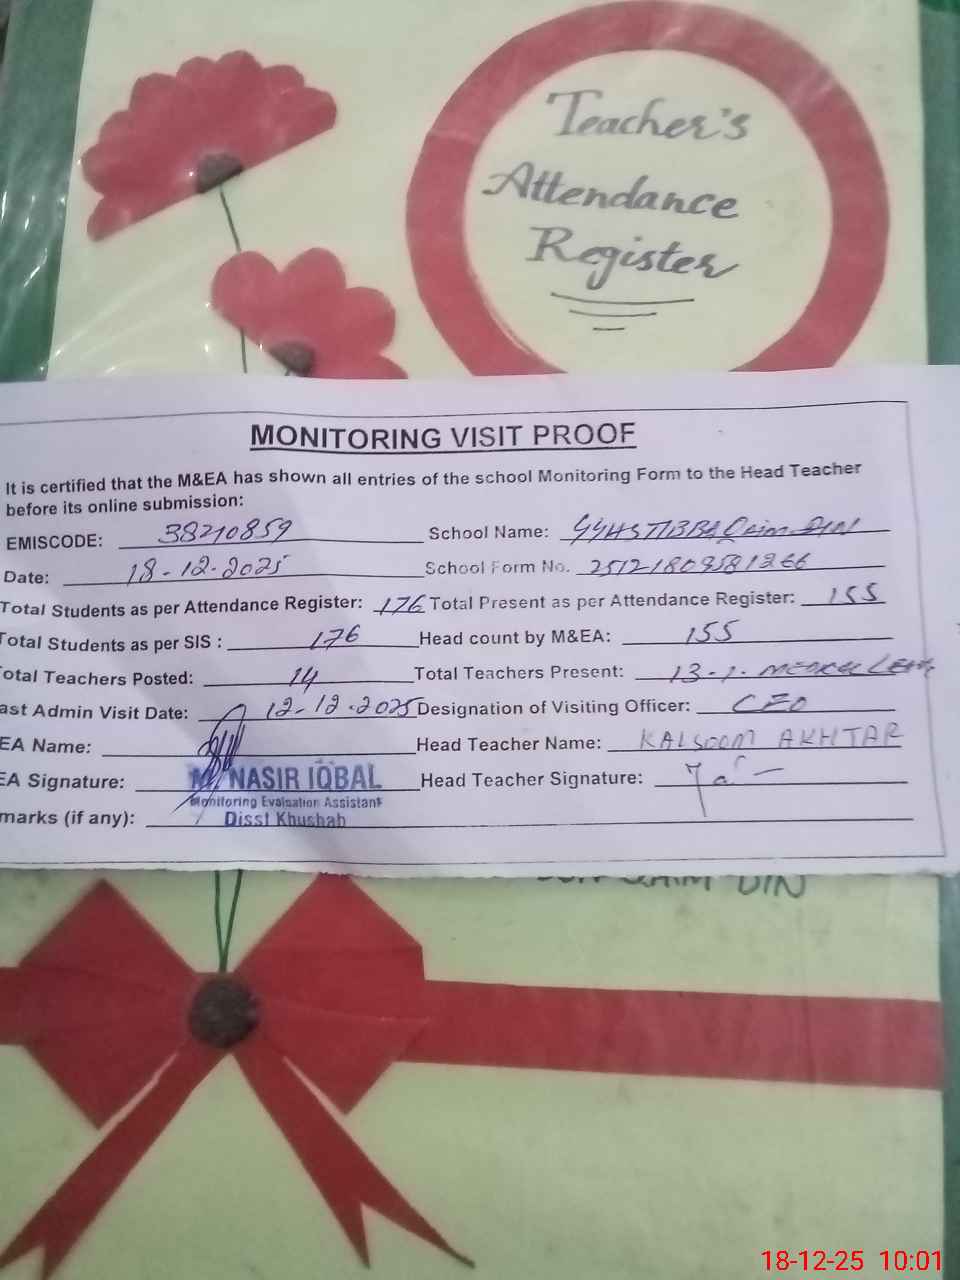 Teacher's
Attendance
Register
MONITORING VISIT PROOF
It is certified that the M&EA has shown all entries of the school Monitoring Form to the Head Teacher
before its online submission:
EMISCODE: 38210859 School Name: GGHS TIBBA Qaim DIN
Date: 18-12-2025 School Form No. 25121809581266
Total Students as per Attendance Register: 176 Total Present as per Attendance Register: 155
Total Students as per SIS : 176 Head count by M&EA: 155
otal Teachers Posted: 14 Total Teachers Present: 13-1. MEDICAL LEAVE
ast Admin Visit Date: 12-12-2025 Designation of Visiting Officer: CEO
EA Name: Head Teacher Name: KALSOOM AKHTAR
EA Signature: Head Teacher Signature:
M. NASIR IQBAL
Monitoring Evaluation Assistant
Disst Khushab
marks (if any):
QAIM DIN
18-12-25 10:01